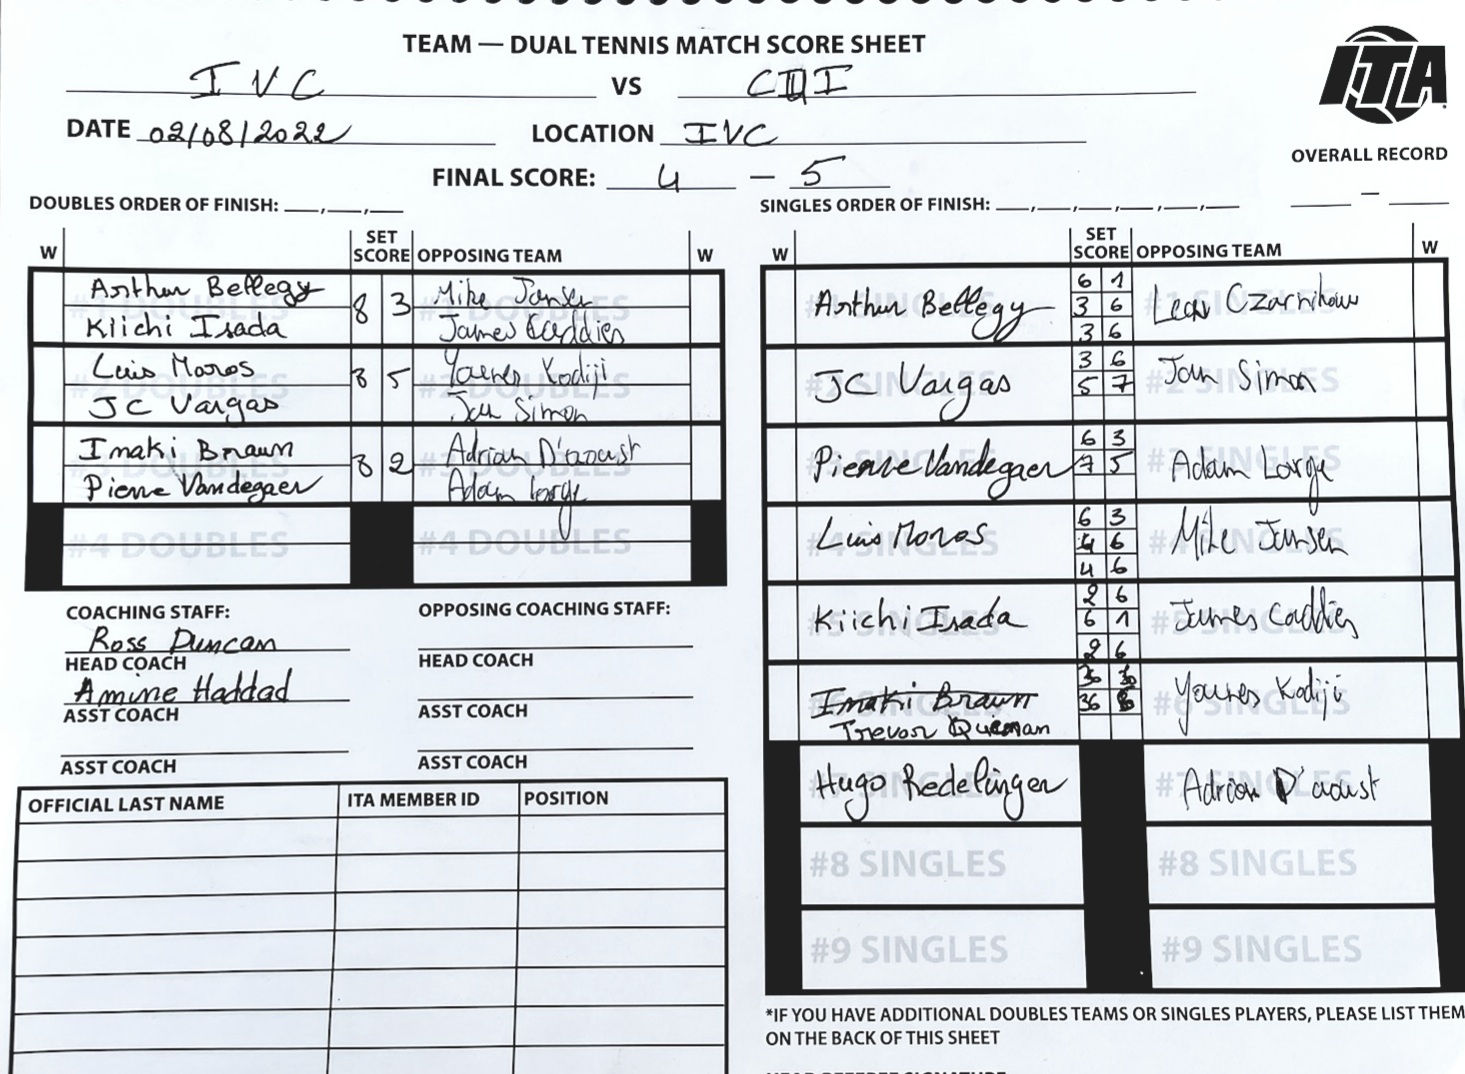 TEAM — DUAL TENNIS MATCH SCORE SHEET
ITA
IVC VS
DATE 02/08/2022 LOCATION IVC
OVERALL RECORD
FINAL SCORE: 4 — 5
—
DOUBLES ORDER OF FINISH: ___,___,___
SINGLES ORDER OF FINISH: ___,___,___,___,___,___
W SET SCORE OPPOSING TEAM W
Arthur Bellegy 8 3 Mike Jansen
Kiichi Isada James Caddies
#1 DOUBLES #1 DOUBLES
Luis Moros 8 5 Younes Kodiji
JC Vargas Jan Simon
#2 DOUBLES #2 DOUBLES
Imaki Braun 8 2 Adrian D'aoust
Pierre Vandegaer Adam Lorge
#3 DOUBLES #3 DOUBLES
#4 DOUBLES #4 DOUBLES
COACHING STAFF: OPPOSING COACHING STAFF:
Ross Duncan
HEAD COACH HEAD COACH
Amine Haddad
ASST COACH ASST COACH
ASST COACH ASST COACH
OFFICIAL LAST NAME ITA MEMBER ID POSITION
W SET SCORE OPPOSING TEAM W
6 1
Arthur Bellegy 3 6 Czarnikow
3 6
#1 SINGLES #1 SINGLES
3 6
JC Vargas 5 7 Jan Simon
#2 SINGLES #2 SINGLES
6 3
Pierre Vandegaer 7 5 Adam Lorge
#3 SINGLES #3 SINGLES
6 3
Luis Moros 4 6 Mike Jansen
4 6
#4 SINGLES #4 SINGLES
2 6
Kiichi Isada 6 1 James Caddies
2 6
#5 SINGLES #5 SINGLES
Imaki Braun Younes Kodiji
Trevor
#6 SINGLES #6 SINGLES
Hugo Redelinger Adrian D'aoust
#7 SINGLES #7 SINGLES
#8 SINGLES #8 SINGLES
#9 SINGLES #9 SINGLES
*IF YOU HAVE ADDITIONAL DOUBLES TEAMS OR SINGLES PLAYERS, PLEASE LIST THEM
ON THE BACK OF THIS SHEET